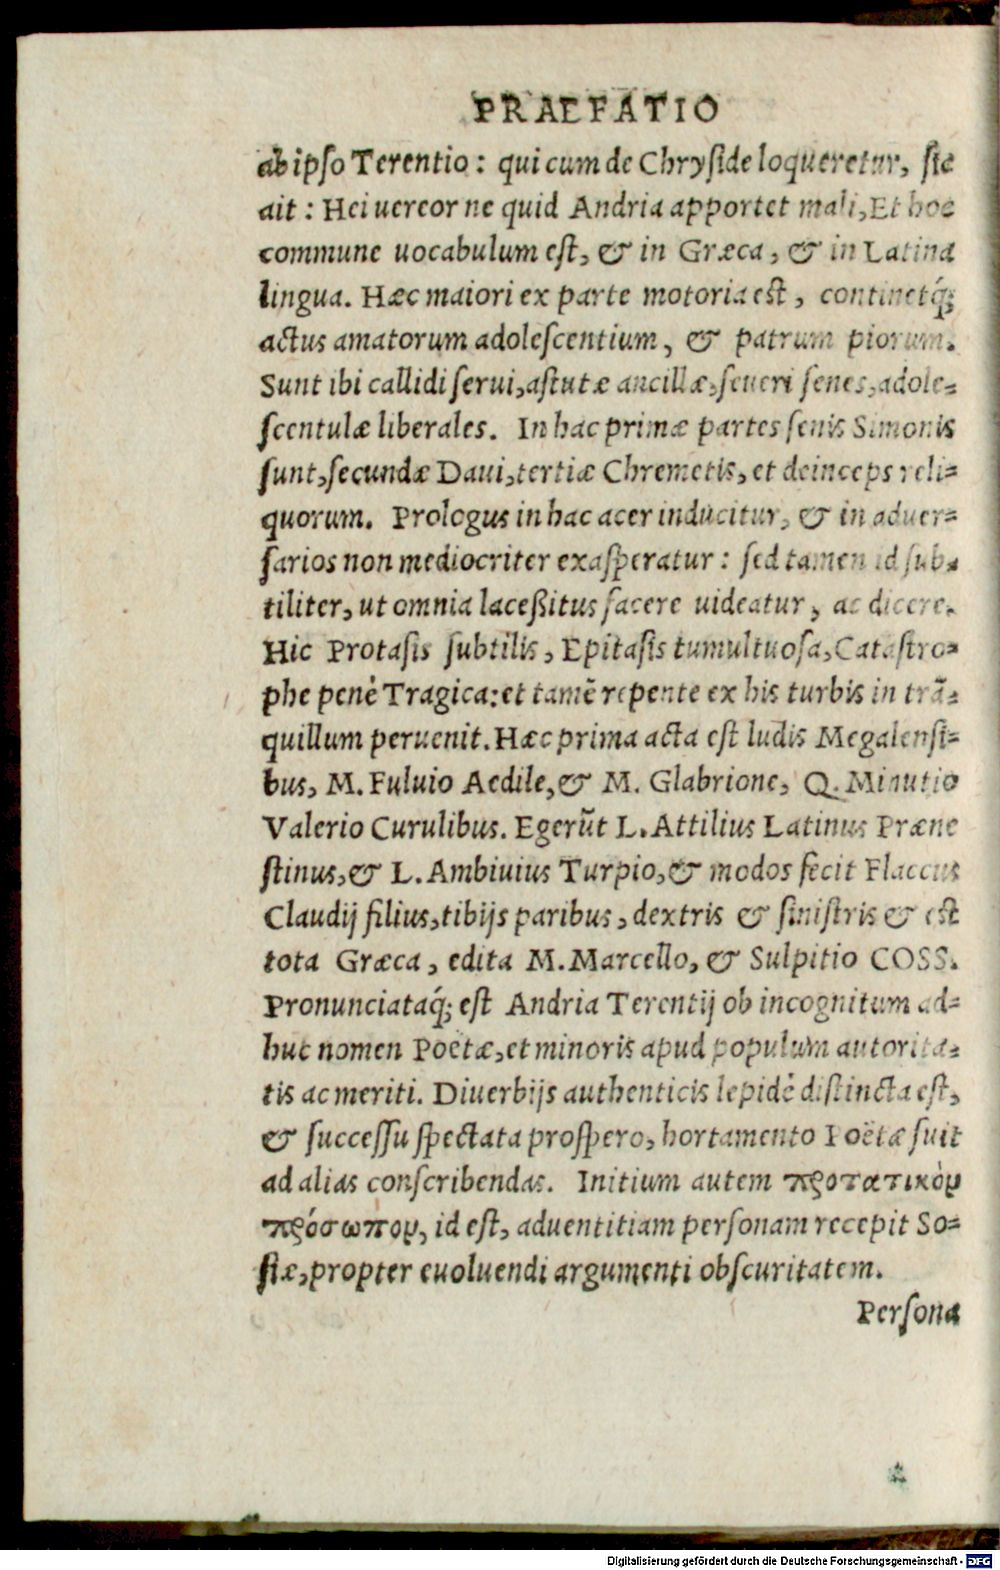 PRAEFATIO
ab ipso Terentio: qui cum de Chryside loqueretur, sic
ait: Hei uereor ne quid Andria apportet mali, Et hoc
commune uocabulum est, & in Græca, & in Latina
lingua. Hæc maiori ex parte motoria est, continetq́;
actus amatorum adolescentium, & patrum piorum.
Sunt ibi callidi serui, astutæ ancillæ, seueri senes, adole-
scentulæ liberales. In hac primæ partes senis Simonis
sunt, secundæ Daui, tertiæ Chremetis, et deinceps reli-
quorum. Prologus in hac acer inducitur, & in aduer-
sarios non mediocriter exasperatur: sed tamen id sub-
tiliter, ut omnia laceßitus facere uideatur, ac dicere.
Hic Protasis subtilis, Epitasis tumultuosa, Catastro-
phe penè Tragica: et tamē repente ex his turbis in trā-
quillum peruenit. Hæc prima acta est ludis Megalensi-
bus, M. Fuluio Aedile, & M. Glabrione, Q. Minutio
Valerio Curulibus. Egerūt L. Attilius Latinus Præne
stinus, & L. Ambiuius Turpio, & modos fecit Flaccus
Claudij filius, tibijs paribus, dextris & sinistris & est
tota Græca, edita M. Marcello, & Sulpitio COSS.
Pronunciataq́; est Andria Terentij ob incognitum ad-
huc nomen Poëtæ, et minoris apud populum autorita-
tis ac meriti. Diuerbijs authenticis lepidè distincta est,
& successu spectata prospero, hortamento Poëtæ fuit
ad alias conscribendas. Initium autem προτατικὸν
πρόσωπον, id est, aduentitiam personam recepit So-
siæ, propter euoluendi argumenti obscuritatem.
Persona
Digitalisierung gefördert durch die Deutsche Forschungsgemeinschaft - DFG